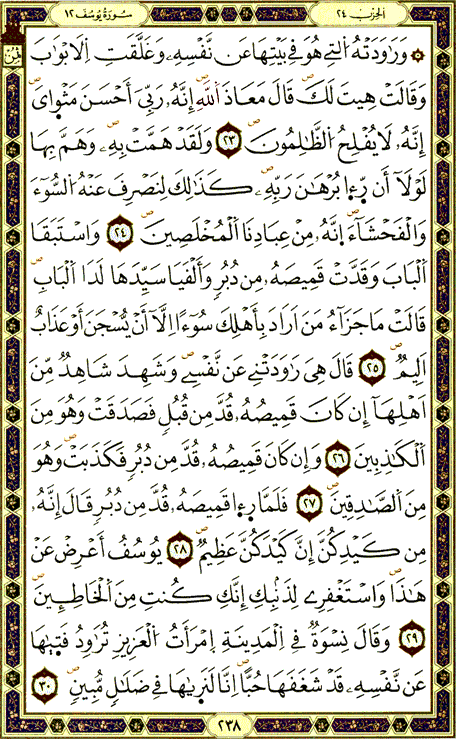 الحِزْبُ ٢٤
سُورَةُ يُوسُفَ ١٢
ثمن
۞ وَرَٰوَدَتْهُ اُلتِے هُوَ فِے بَيْتِهَا عَن نَّفْسِهِۦ وَغَلَّقَتِ اِلَابْوَٰبَ
وَقَالَتْ هِيتَ لَكَ قَالَ مَعَاذَ اَللَّهِ إِنَّهُۥ رَبِّيَ أَحْسَنَ مَثْوَايَ
إِنَّهُۥ لَا يُفْلِحُ اُلظَّٰلِمُونَ ٢٣ وَلَقَدْ هَمَّتْ بِهِۦ وَهَمَّ بِهَا
لَوْلَآ أَن رَّءِا بُرْهَٰنَ رَبِّهِۦ كَذَٰلِكَ لِنَصْرِفَ عَنْهُ اُلسُّوٓءَ
وَالْفَحْشَآءَ اِ۪نَّهُۥ مِنْ عِبَادِنَا اَلْمُخْلَصِينَ ٢٤ وَاسْتَبَقَا
اَلْبَابَ وَقَدَّتْ قَمِيصَهُۥ مِن دُبُرٖ وَأَلْفَيَا سَيِّدَهَا لَدَا اَلْبَابِ
قَالَتْ مَا جَزَآءُ مَنَ اَرَادَ بِأَهْلِكَ سُوٓءاً اِلَّآ أَنْ يُّسْجَنَ أَوْ عَذَابٌ
اَلِيمٌ ٢٥ قَالَ هِيَ رَٰوَدَتْنِے عَن نَّفْسِے وَشَهِدَ شَاهِدٌ مِّنَ
اَهْلِهَآ إِن كَانَ قَمِيصُهُۥ قُدَّ مِن قُبُلٖ فَصَدَقَتْ وَهُوَ مِنَ
اَلْكَٰذِبِينَ ٢٦ وَإِن كَانَ قَمِيصُهُۥ قُدَّ مِن دُبُرٖ فَكَذَبَتْ وَهُوَ
مِنَ اَلصَّٰدِقِينَ ٢٧ فَلَمَّا رَءِا قَمِيصَهُۥ قُدَّ مِن دُبُرٖ قَالَ إِنَّهُۥ
مِن كَيْدِكُنَّ إِنَّ كَيْدَكُنَّ عَظِيمٌ ٢٨ يُوسُفُ أَعْرِضْ عَنْ
هَٰذَا وَاسْتَغْفِرِے لِذَنۢبِكِ إِنَّكِ كُنتِ مِنَ اَلْخَاطِـِٕينَ
٢٩ وَقَالَ نِسْوَةٌ فِے اِلْمَدِينَةِ اِ۪مْرَأَتُ اُلْعَزِيزِ تُرَٰوِدُ فَتَيٰهَا
عَن نَّفْسِهِۦ قَدْ شَغَفَهَا حُبّاً اِنَّا لَنَرَيٰهَا فِے ضَلَٰلٖ مُّبِينٖ ٣٠
٢٣٨